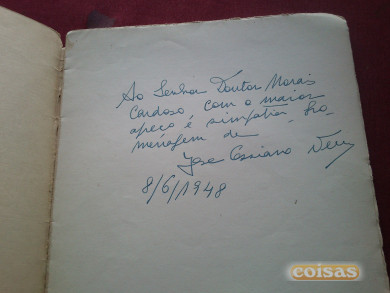 Ao Senhor Doutor Morais
Cardoso com o maior
apeço e simpatia, ho-
menagem de
José Cassiano Neves
8/6/1948
coisas